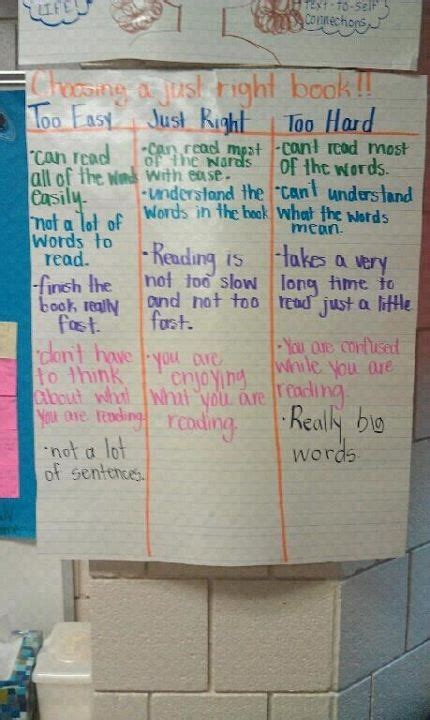 LIFE!
Text-to-self
Connections
Choosing a just right book!!
Too Easy
Just Right
Too Hard
·can read
all of the words
easily.
·not a lot of
words to
read.
·finish the
book really
fast.
·don't have
to think
about what
you are reading.
·not a lot
of sentences.
·can read most
of the words
with ease.
·understand the
words in the book
·Reading is
not too slow
and not too
fast.
·you are
enjoying
what you are
reading.
·can't read most
of the words.
·can't understand
what the words
mean.
·takes a very
long time to
read just a little
·You are confused
while you are
reading.
·Really big
words.